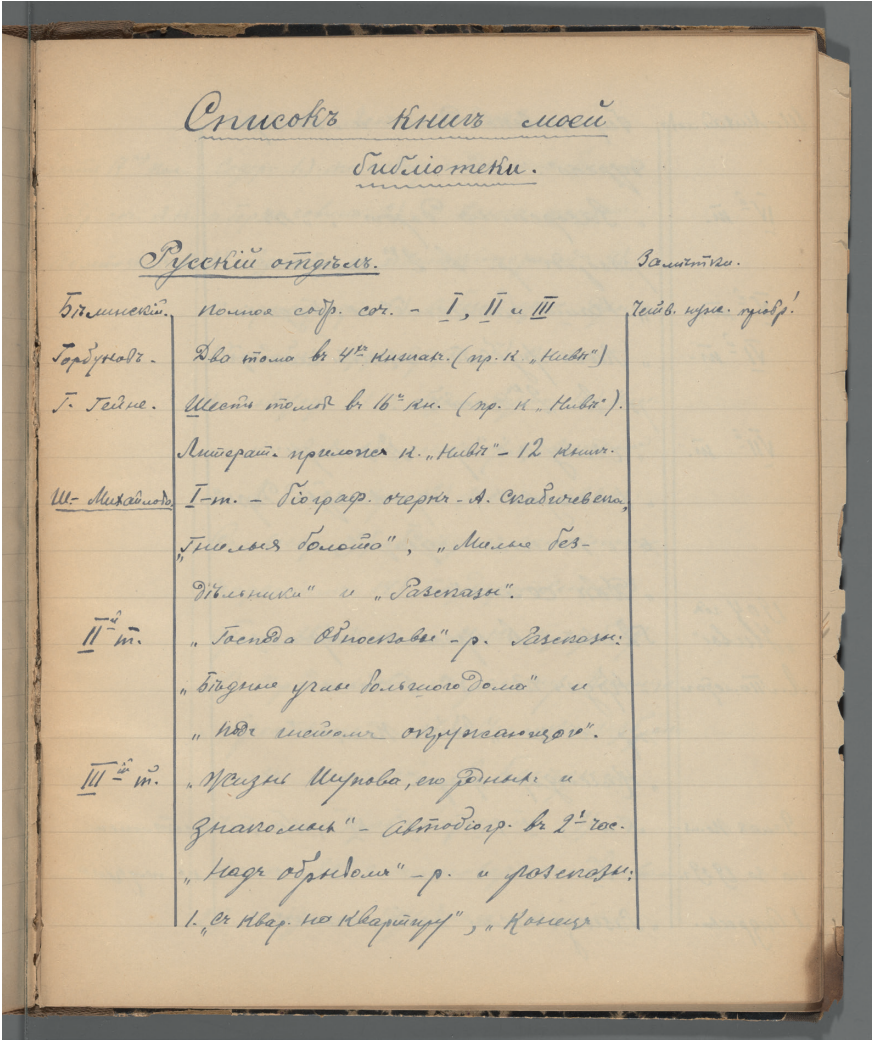 Списокъ книгъ моей
библіотеки.
Русскій отдѣлъ. Замѣтки.
Бѣлинскій. полное собр. соч. - I, II и III Четв. нуж. пріобр!
Горбуновъ. Два тома въ 4хъ книгах. (пр. к „Нивѣ")
Г. Гейне. Шесть томовъ въ 16и кн. (пр. к „Нивѣ").
Литерат. прилож к. „Нивѣ" - 12 книг.
Ш.- Михайловъ. I-т. - біограф. очеркъ - А. Скабичевска,
„Гнилыя болота", „Милые без-
дѣльники" и „Разсказы".
IIй т. „Господа Обносковы" - р. Разсказы:
„Бѣдные углы большого дома" и
„подъ гнетомъ окружающого".
IIIій т. „Жизнь Шупова, его родных: и
знакомыхъ" - автобіогр. въ 2х час.
„Надъ обрывомъ" - р. и разсказы:
1. „Съ квар. на квартиру", „Конецъ